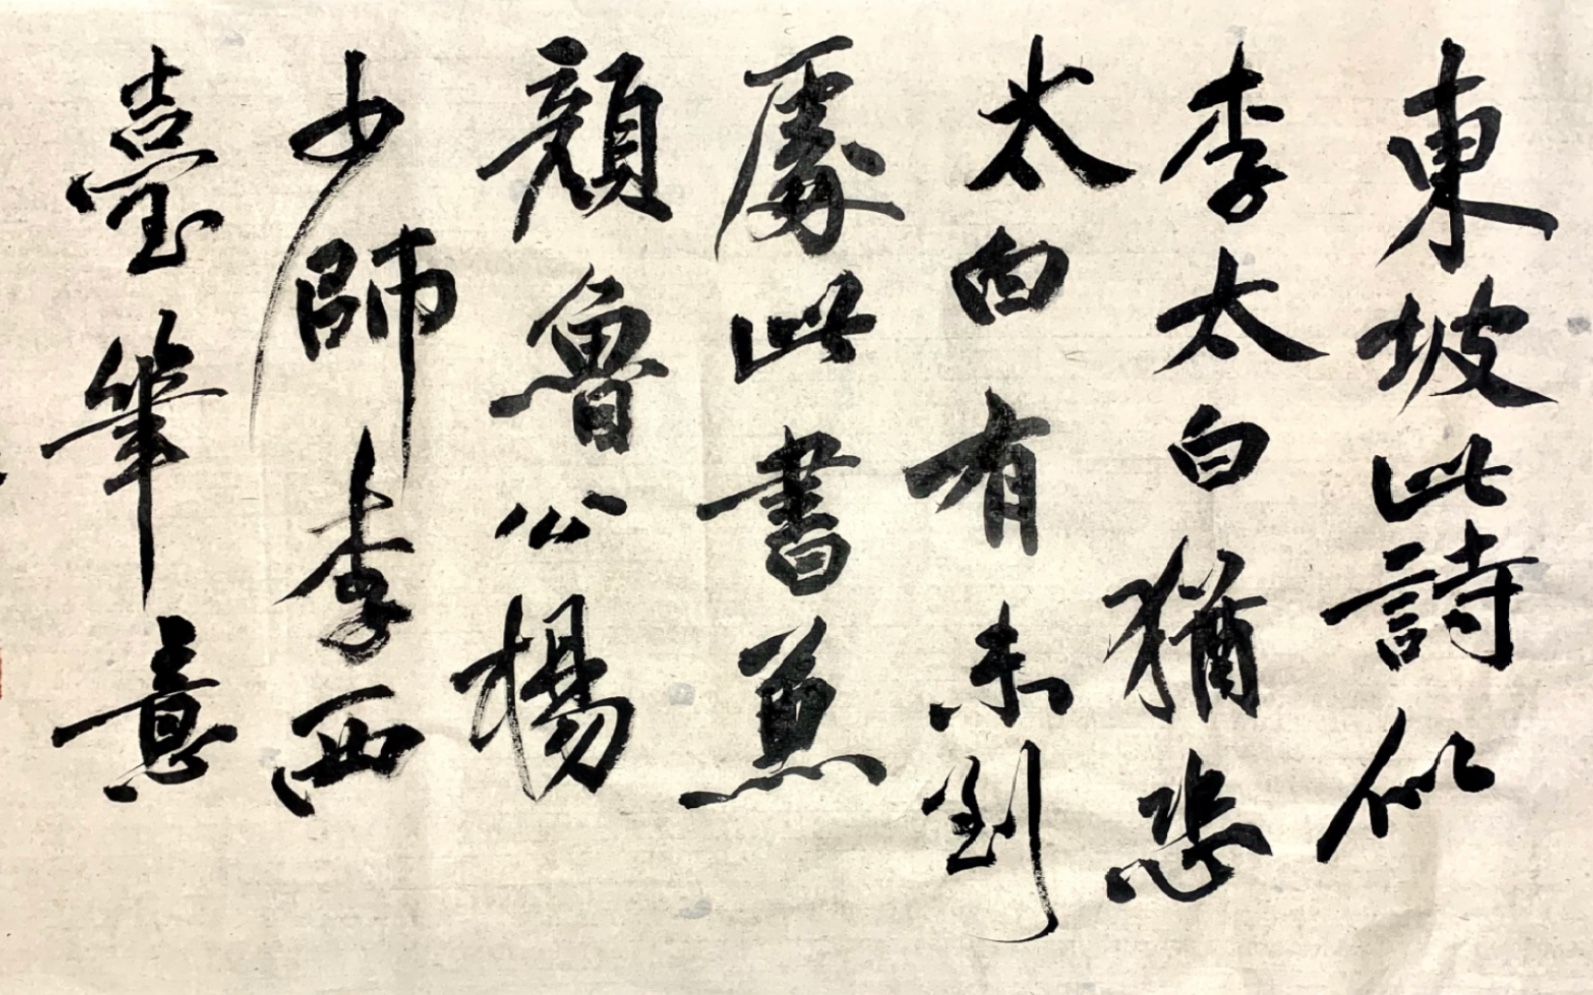 東坡此詩似
李太白猶恐
太白有未到
處此書兼
顏魯公楊
少師李西
臺筆意